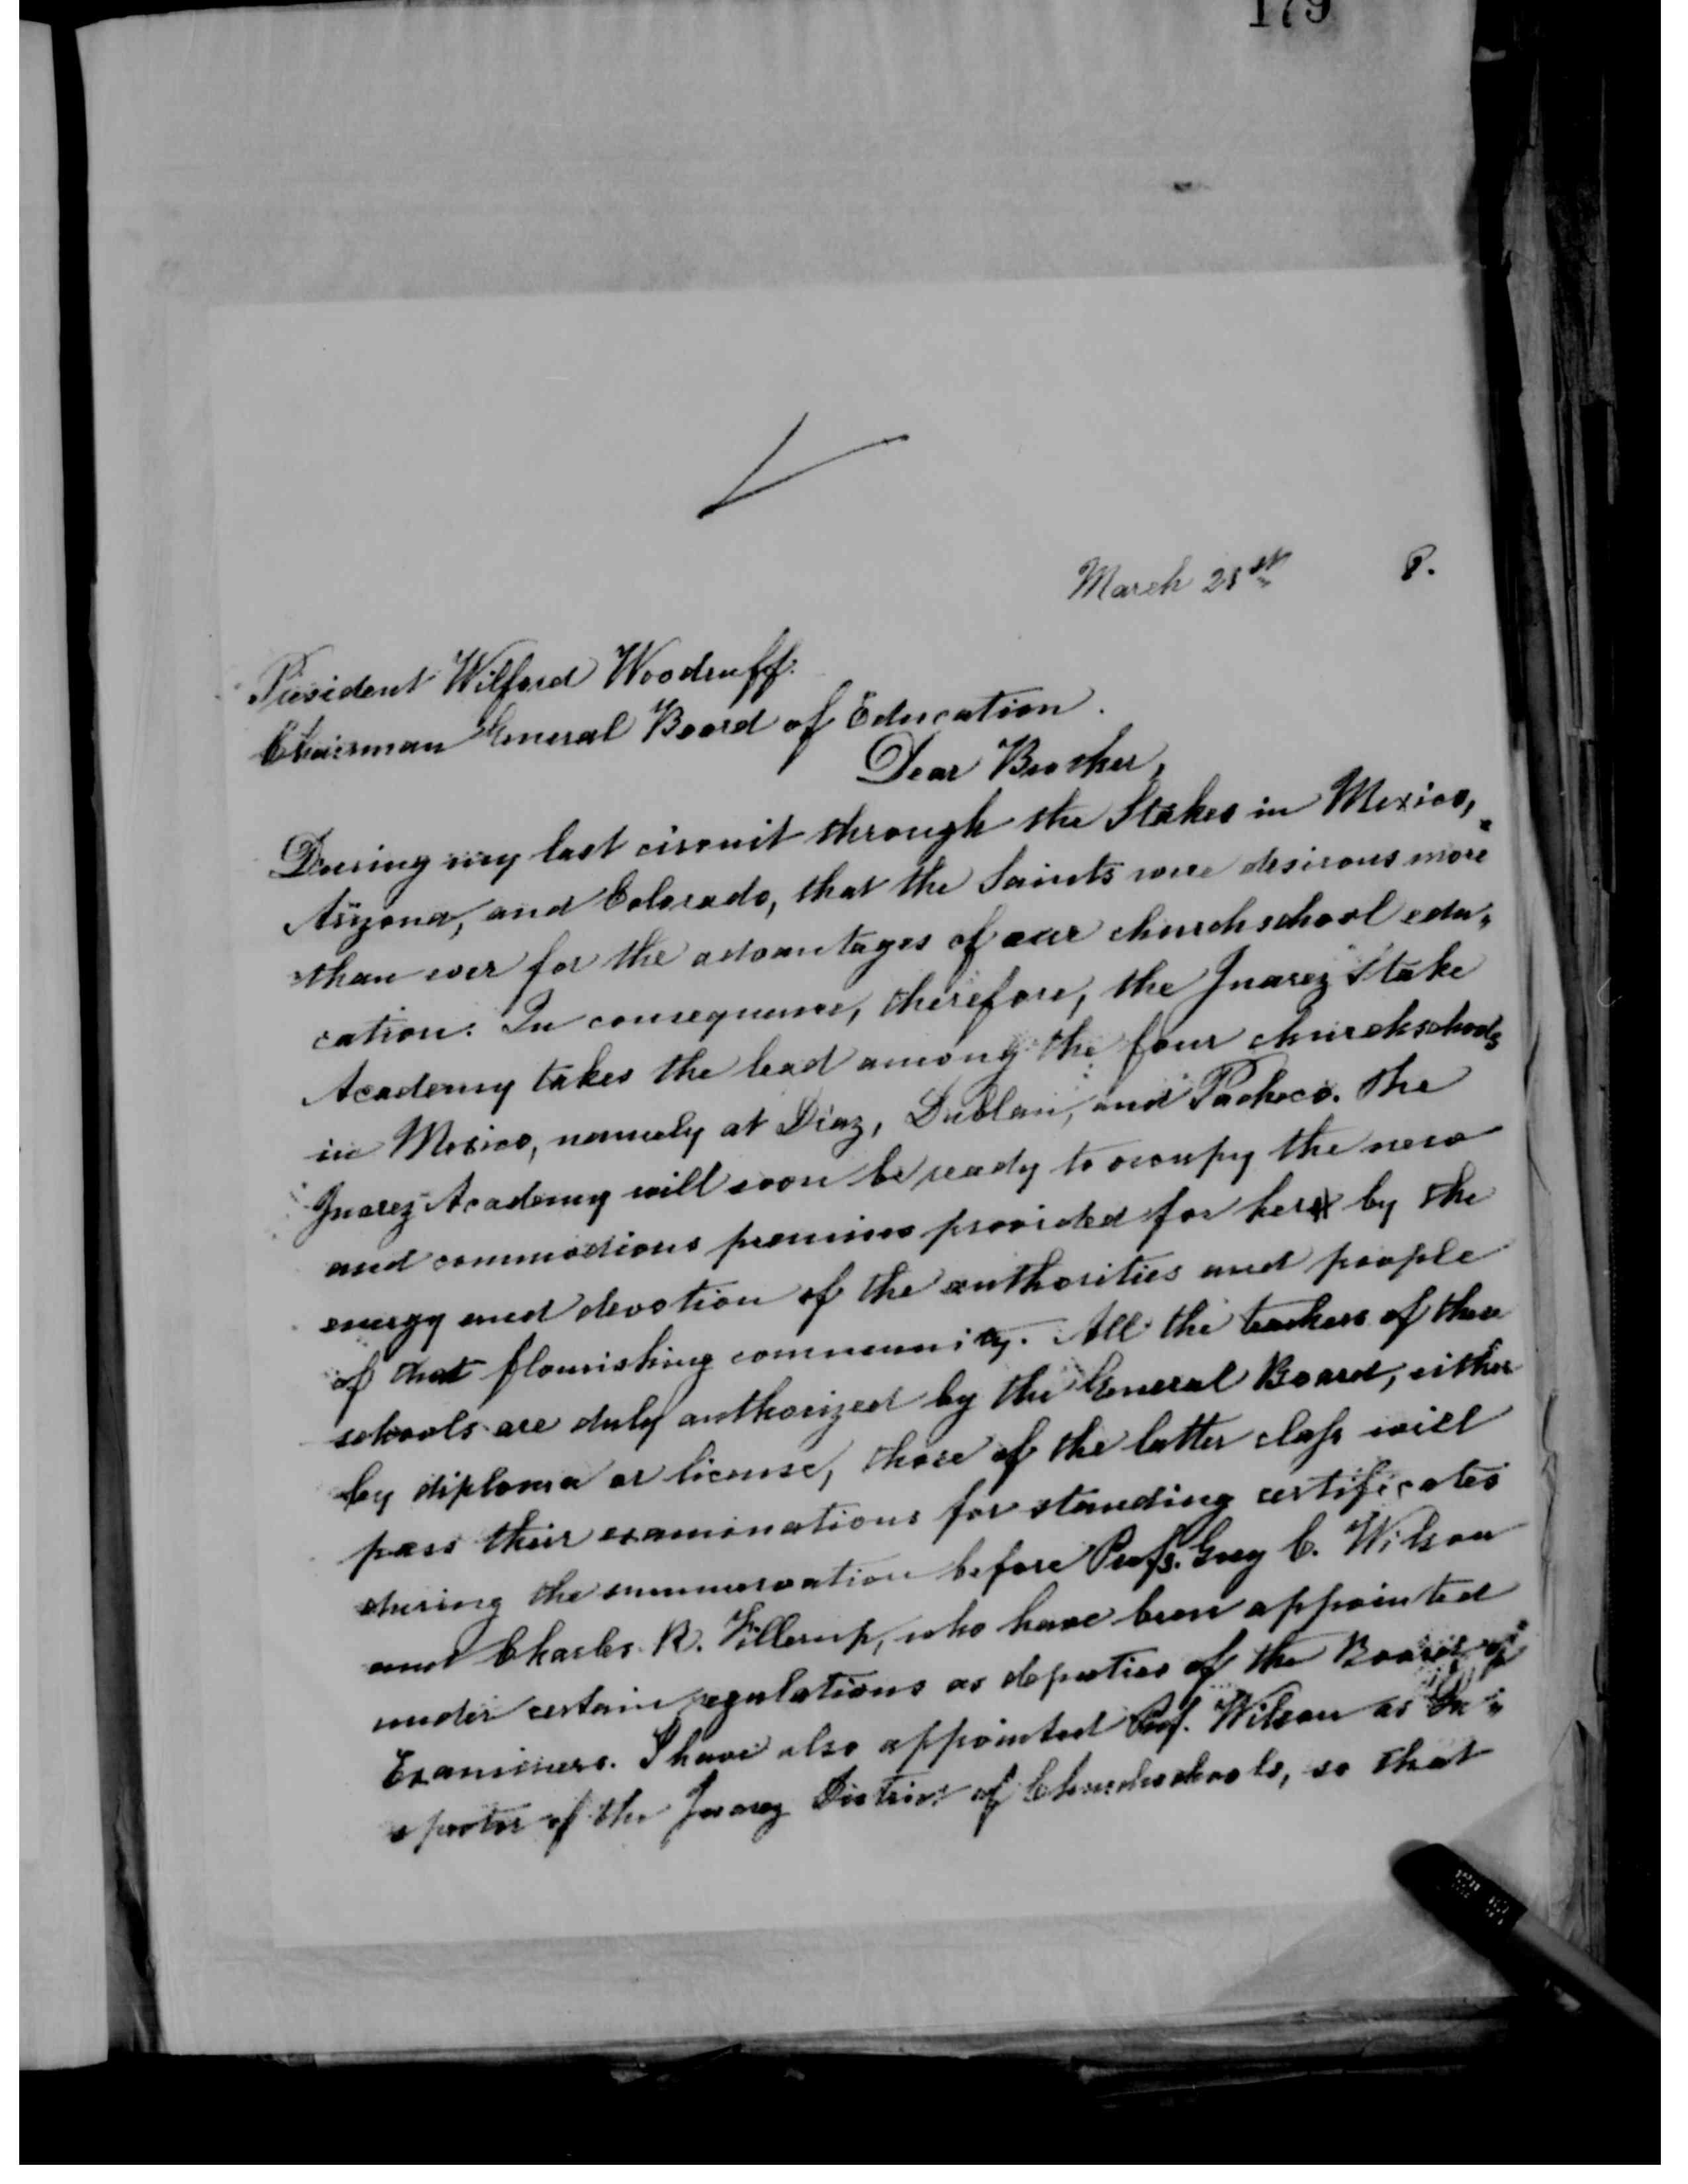 179
March 21st 8.
President Wilford Woodruff.
Chairman General Board of Education.
Dear Brother,
During my last circuit through the Stakes in Mexico,
Arizona, and Colorado, that the Saints were desirous more
than ever for the advantages of our churchschool edu-
cation. In consequence, therefore, the Juarez Stake
Academy takes the lead among the four churchschools
in Mexico, namely at Diaz, Dublan, and Pacheco. The
Juarez Academy will soon be ready to occupy the new
and commodious premises provided for her by the
energy and devotion of the authorities and people
of that flourishing community. All the teachers of these
schools are duly authorized by the General Board, either
by diploma or license, those of the latter class will
pass their examinations for standing certificates
during the summervacation before Profs. Guy C. Wilson
and Charles R. Fillerup, who have been appointed
under certain regulations as deputies of the Board of
Examiners. I have also appointed Prof. Wilson as In-
spector of the Juarez District of Churchschools, so that